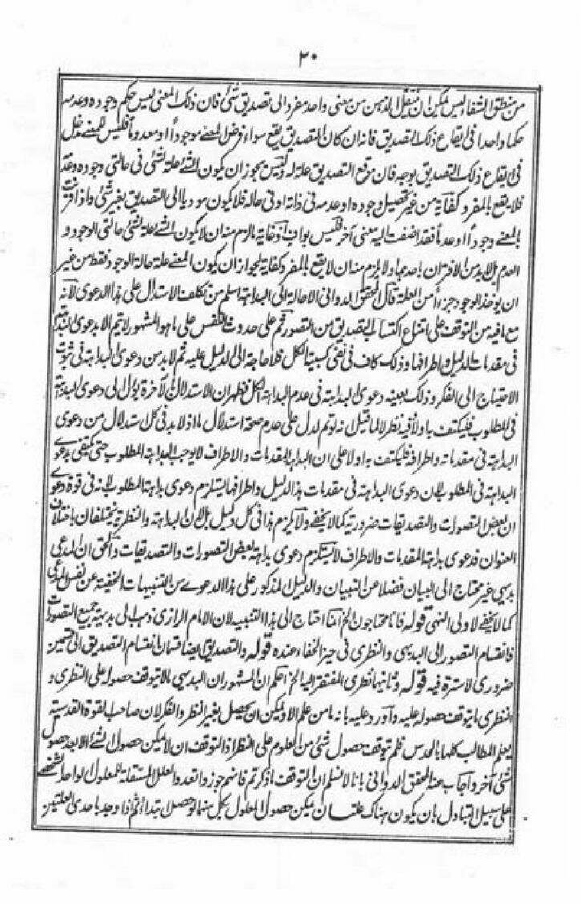 ٢٠
من منطق الشفا ليس يمكن ان ينتقل الذهن من معنى واحد مفرد الى تصديق شئ فان ذلك المعنى ليس حكم وجوده وعدمه
حكما واحدا فى ايقاع ذلك التصديق فانه ان كان التصديق يقع سواء فرض المعنى موجودا او معدوما فليس للمعنى مدخل
فى ايقاع ذلك التصديق بوجه فان موقع التصديق علة له وليس يجوز ان يكون الشئ علة لشئ فى حالتى وجوده وعدمه
فلا يقع بالمفرد كفاية من غير تحصيل وجوده او عدمه فى ذاته او فى حاله فلا يكون موديا الى التصديق بغيره شئ واذا قرنت
بالمعنى وجودا او عدما فقد اضفت اليه معنى آخر فليس بواب اذ غاية مالزم منه ان لا يكون الشئ علة لشئ حالتى الوجود و
العدم بل لا بد من الاقتران باحدهما ولا يلزم منه ان لا يقع بالمفرد كفاية لجواز ان يكون المعنى علة حالة الوجود فقط من غير
ان يوخذ الوجود جزءا من العلة قال المحقق الدوانى الاحالة الى البداهة اسلم من تكلف الاستدلال على هذا الدعوى لانه
مع ما فيه من التوقف على امتناع اكتساب التصديق من التصور ثم على حدوث النفس على ما هو المشهور لا يتم الا بدعوى البداهة
فى مقدمات الدليل واطرافها وذلك كاف فى نفى كسبية الكل فلا حاجة الى الدليل عليه ثم لا بد من دعوى البداهة فى ثبوت
الاحتياج الى الفكر وذلك بعينه دعوى البداهة فى عدم بداهة الكل فظهر ان الاستدلال بالآخرة يؤل الى دعوى البداهة
فى المطلوب فليكتف به اولا وفيه نظر لا لما قيل انه لو تم لدل على عدم صحة استدلال ما اذ لا بد فى كل استدلال من دعوى
البداهة فى مقدماته واطرافه فليكتف به اولا على ان بداهة المقدمات والاطراف لا يوجب بداهة المطلوب حتى يكتفى بدعوى
البداهة فى المطلوب لان دعوى البداهة فى مقدمات هذا الدليل واطرافها يستلزم دعوى بداهة المطلوب لانه فى قوة دعوى
ان بعض التصورات والتصديقات ضرورية كما لا يخفى ولا يلزم هذا فى كل دليل بل لان البداهة والنظرية يختلفان باختلاف
العنوان فدعوى بداهة المقدمات والاطراف لا يستلزم دعوى بداهة بعض التصورات والتصديقات والحق ان المدعى
بديهى غير محتاج الى البيان فضلا عن التبيان والدليل المذكور على هذا الدعوى من التنبيهات الخفيفة عن نفس المدعى
كما لا يخفى لاولى النهى قوله فانا محتاجون الخ انما احتاج الى هذا التنبيه لان الامام الرازى ذهب الى بديهية جميع التصورات
فانقسام التصور الى البديهى والنظرى فى حيز الخفاء عنده قوله والتصديق ايضا قسمان انقسام التصديق الى قسمين
ضرورى لا سترة فيه قوله وثانيهما نظرى المفتقر اليه الخ اعلم ان المشهور ان البديهى ما لا يتوقف حصوله على النظرى و
النظرى ما يتوقف حصوله عليه واورد عليه بانه ما من علم الا ويمكن ان يحصل بغير النظر والفكر لان صاحب القوة القدسية
يعلم المطالب كلها بالحدس فلم يتوقف حصول شئ من العلوم على النظر اذ التوقف ان لا يمكن حصول الشئ الا بعد حصول
شئ آخر واجاب عنه المحقق الدوانى بانا لا نسلم ان التوقف ما ذكرتم فانهم جوزوا تعدد العلل المستقلة للمعلول الواحد الشخصى
على سبيل التبادل بان يكون هناك علتان يمكن حصول المعلول بكل منهما لو حصلا ابتداء ثم اذا وجد باحدى العلتين